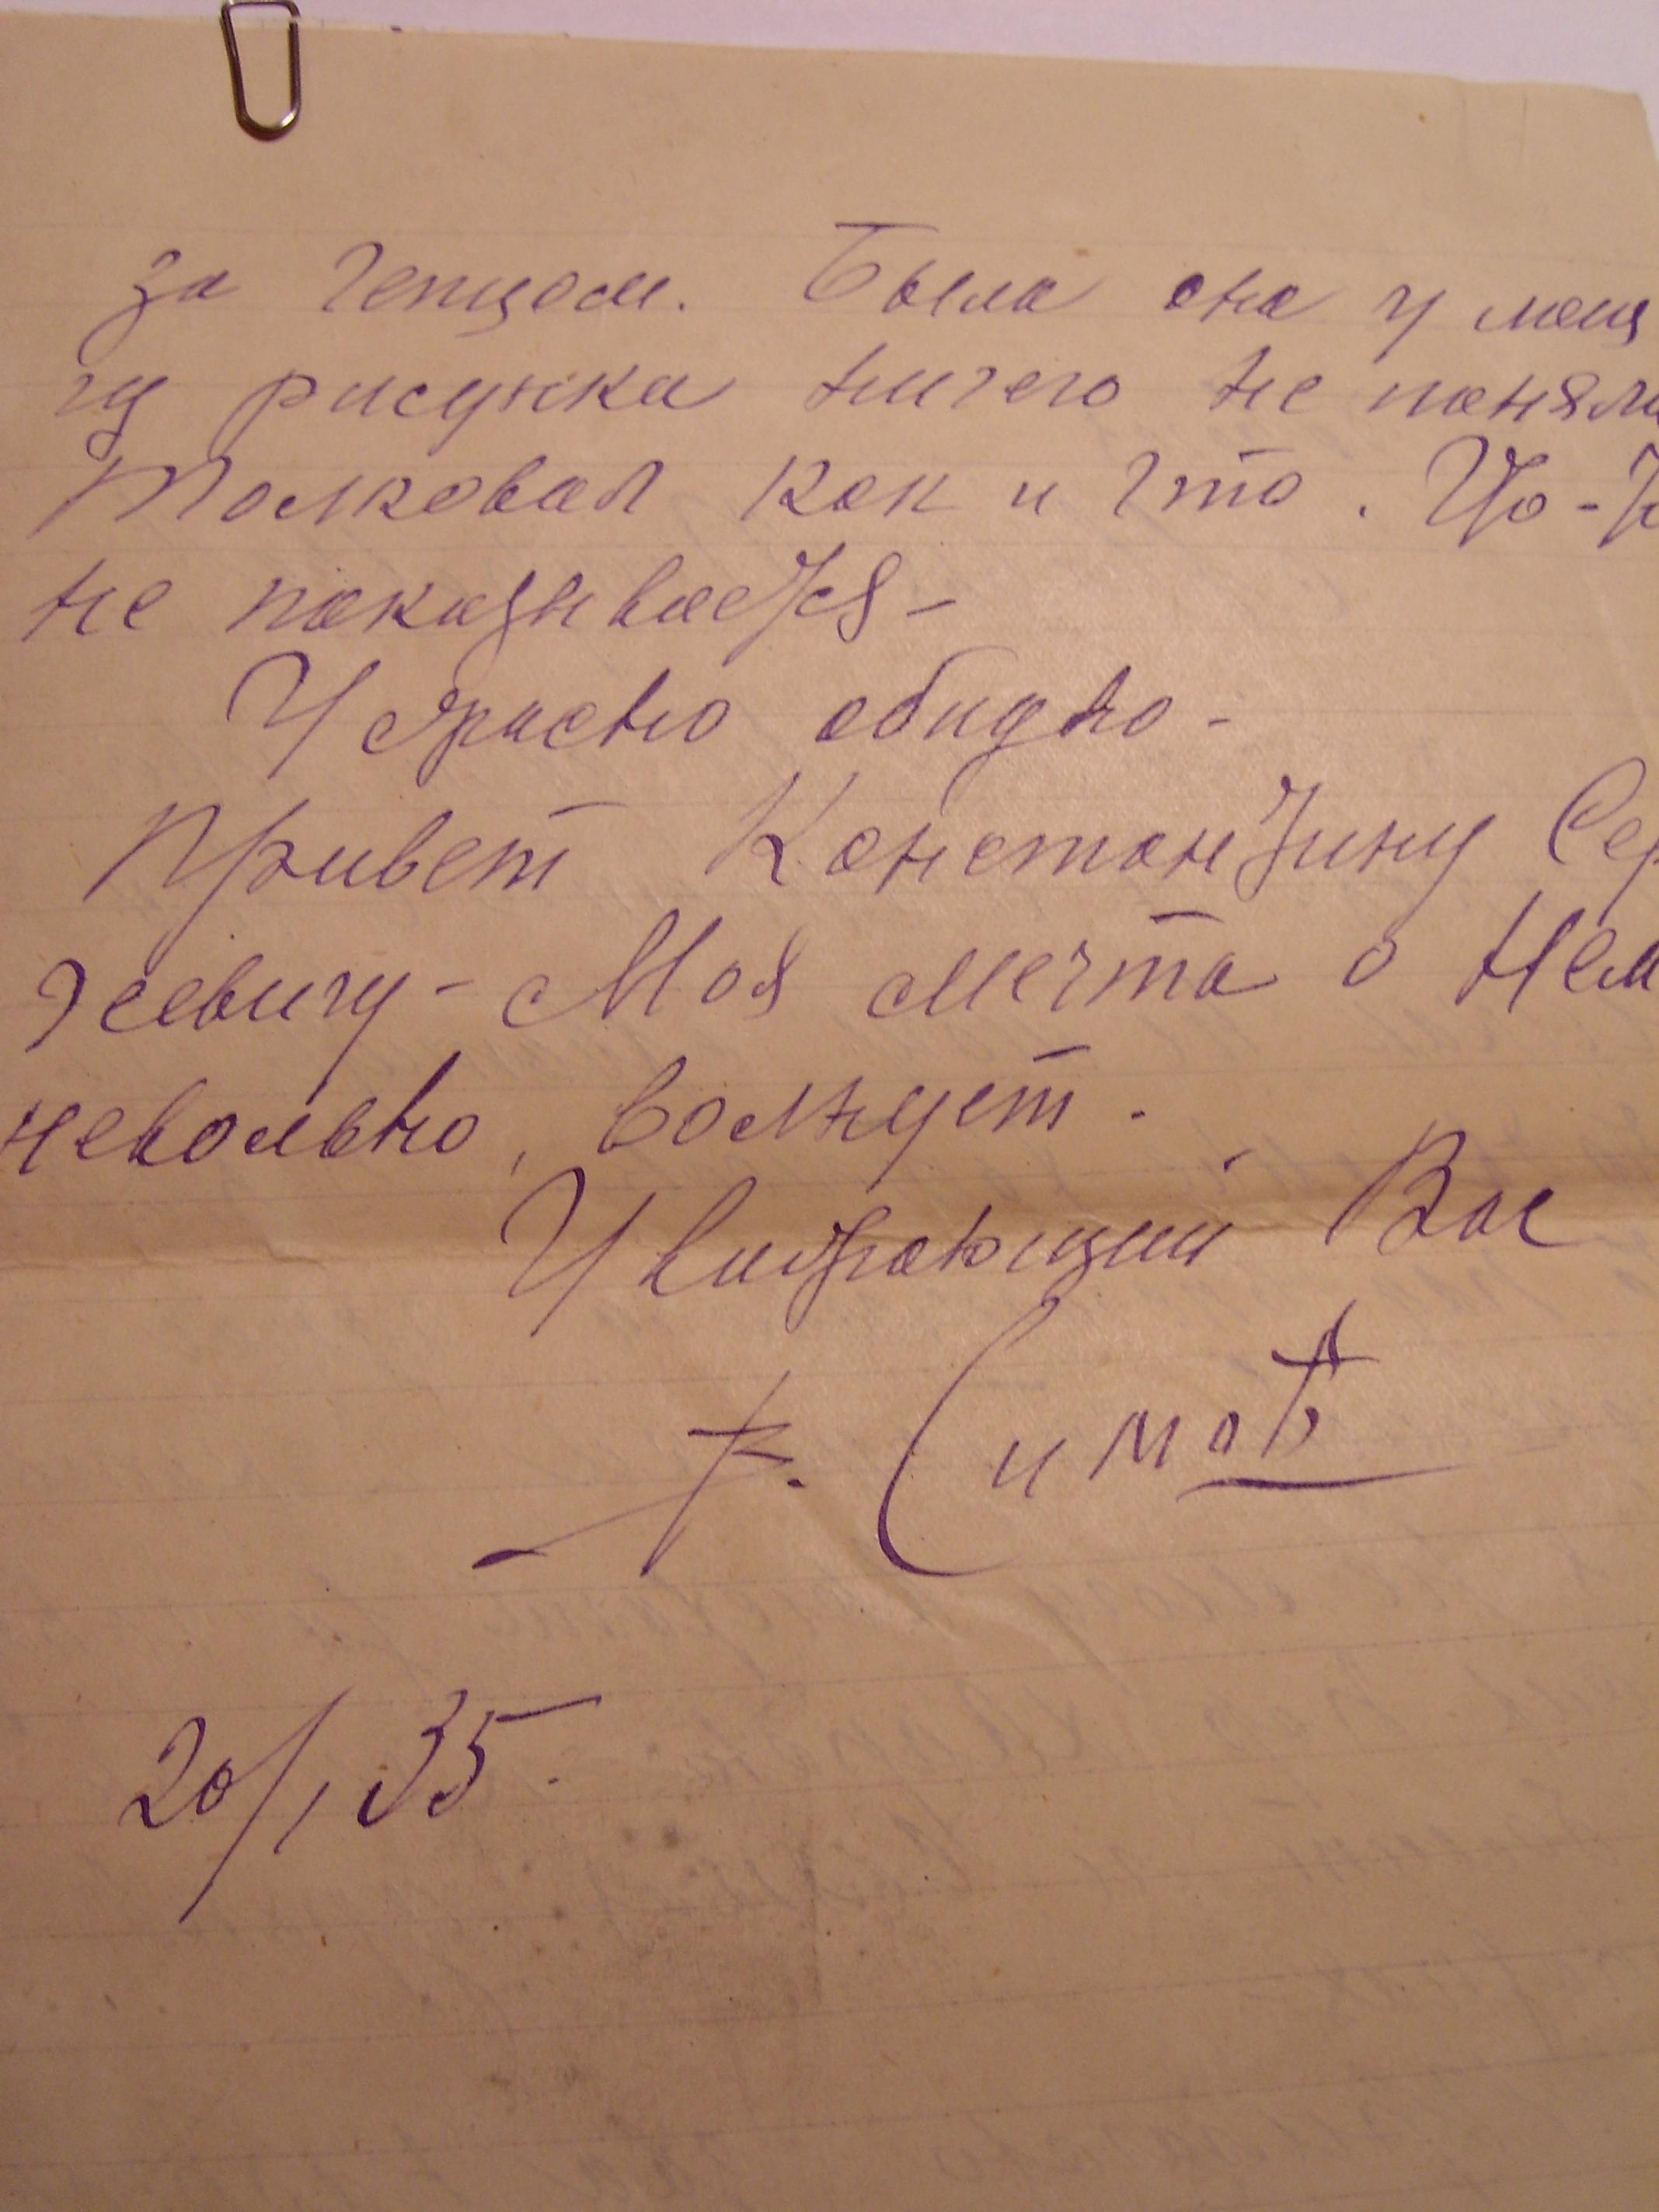 за чепцом. Была она у мен
из рисунка ничего не поняла
толковал как и что. Что-
не показывается-
Ужасно обидно-
Привет Константину Сер
геевичу - Моя мечта о Нем
невольно, волнует.
Уважающий Вас
В. Симов
20/1 35.